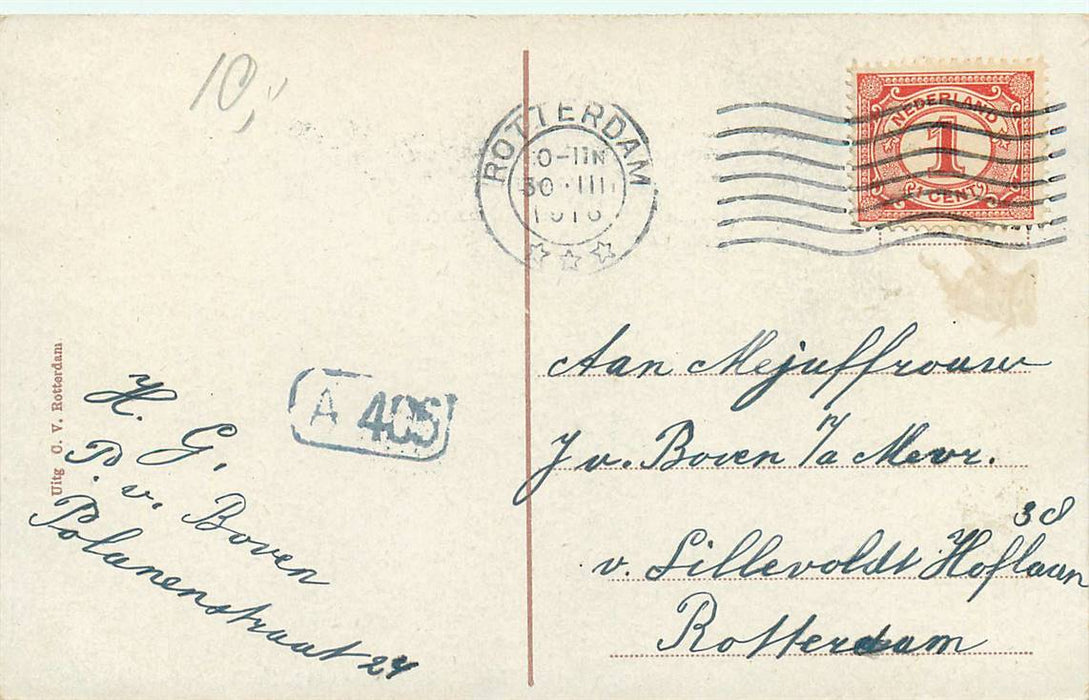 10,-
ROTTERDAM
0-11N
30.III
1916
NEDERLAND
1
1 CENT
Uitg C. V. Rotterdam
H. G.
P. v. Boven
Polanenstraat 24
A 405
Aan Mejuffrouw
J v. Boven n/a Mevr.
38
v. Lillevoldt Hoflaan
Rotterdam